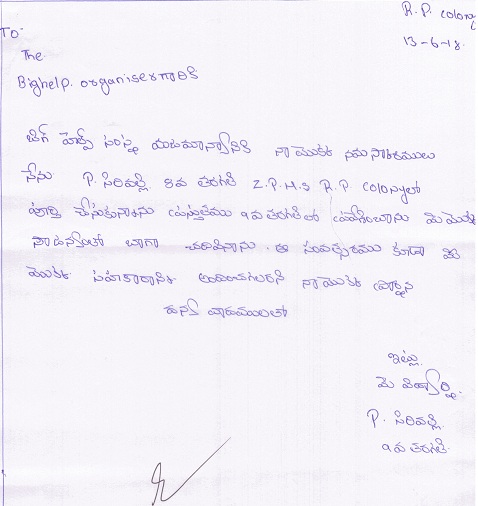 R.P. colony
13-6-18.
To:
The
Bighelp. organiserగారికి
బిగ్ హెల్ప్ సంస్థ యజమాన్యానికి నా యొక్క నమస్కారములు
నేను P. సిరివల్లి 8వ తరగతి Z.P.H.S R.P. Colonyలో
పూర్తి చేసుకున్నాను ప్రస్తుతము 9వ తరగతిలో ప్రవేశించాను మీ యొక్క
సాయంతో బాగా చదివినాను. ఈ సంవత్సరము కూడా మీ
యొక్క సహకారానిక అందించగలరని నా యొక్క ప్రార్థన
ధన్య వాదములతో
ఇట్లు
మీ విద్యార్థి.
P. సిరివల్లి.
9వ తరగతి.